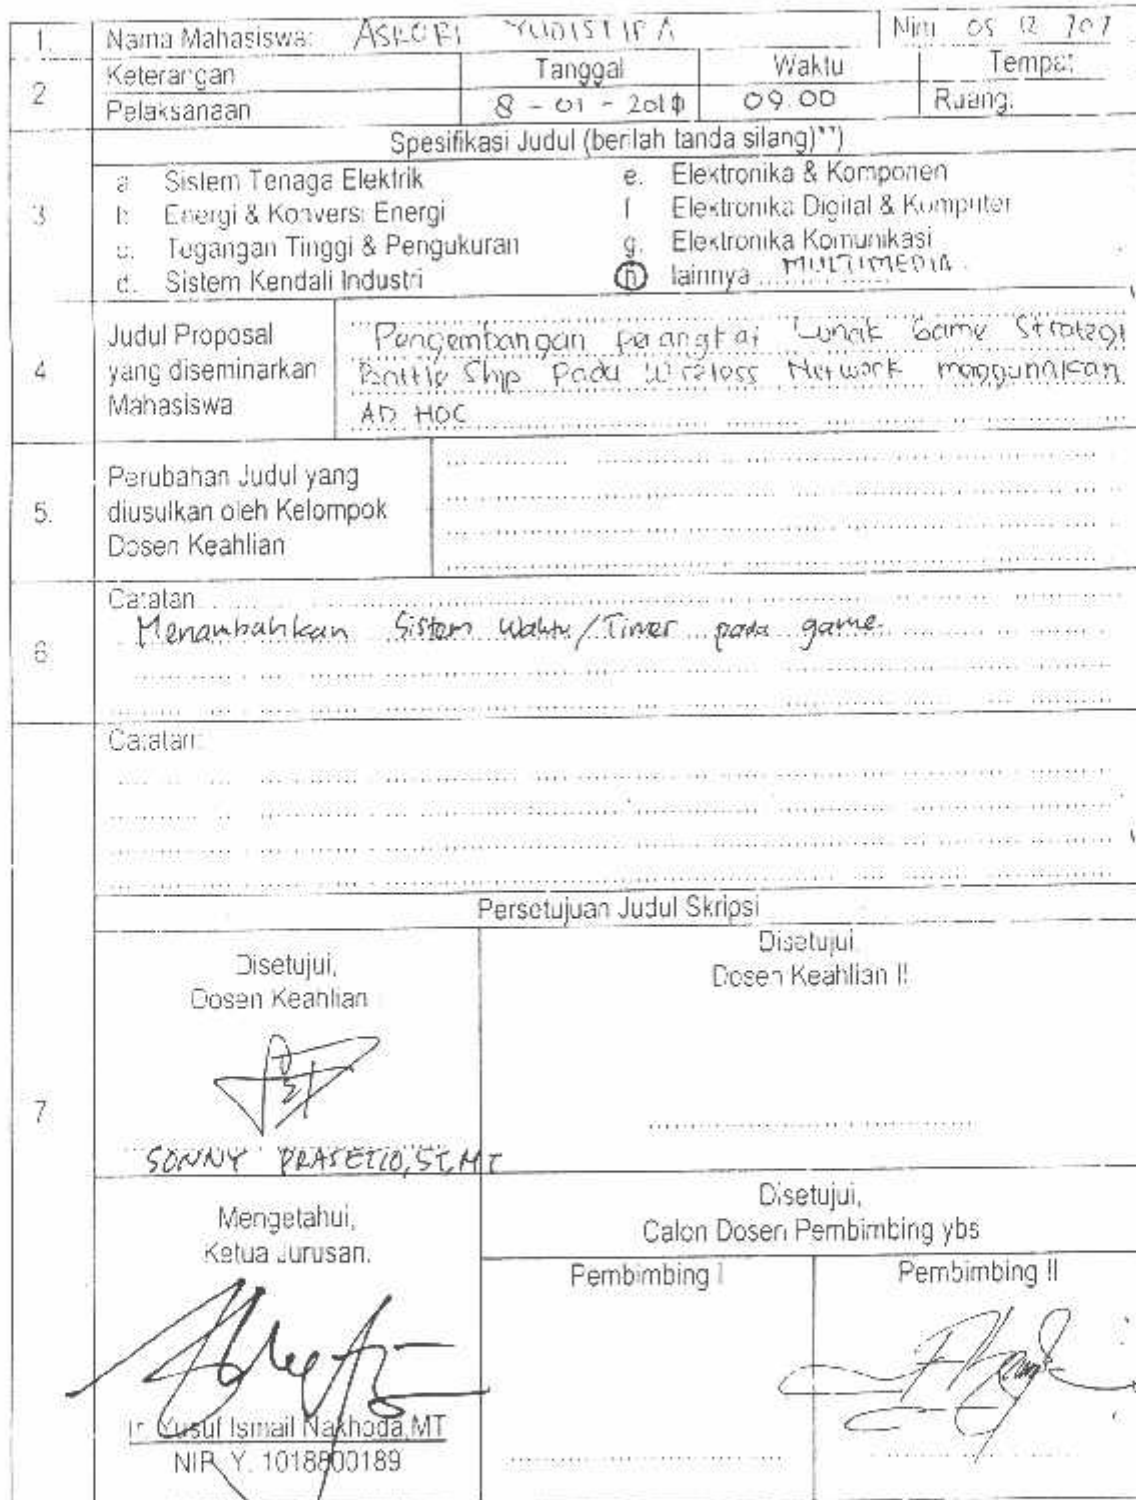 1. Nama Mahasiswa: ASRORI YUDISTIRA Nim 05 12 707
2 Keterangan Pelaksanaan Tanggal Waktu Tempat
8 - 01 - 2010 09.00 Ruang:
Spesifikasi Judul (berilah tanda silang)**)
3 a Sistem Tenaga Elektrik e. Elektronika & Komponen
b. Energi & Konversi Energi f Elektronika Digital & Komputer
c. Tegangan Tinggi & Pengukuran g. Elektronika Komunikasi
d. Sistem Kendali Industri h lainnya MULTIMEDIA.
4. Judul Proposal yang diseminarkan Mahasiswa
Pengembangan perangkat Lunak Game Strategi
Battle Ship Pada Wireless Network menggunakan
AD HOC
5. Perubahan Judul yang
diusulkan oleh Kelompok
Dosen Keahlian
6 Catatan:
Menambahkan Sistem Waktu/Timer pada game.
Catatan:
Persetujuan Judul Skripsi
7 Disetujui,
Dosen Keahlian
SONNY PRASETIO, ST, MT
Disetujui
Dosen Keahlian II
Mengetahui,
Ketua Jurusan.
Ir. Yusuf Ismail Nakhoda, MT
NIP. Y. 1018800189
Disetujui,
Calon Dosen Pembimbing ybs
Pembimbing I Pembimbing II